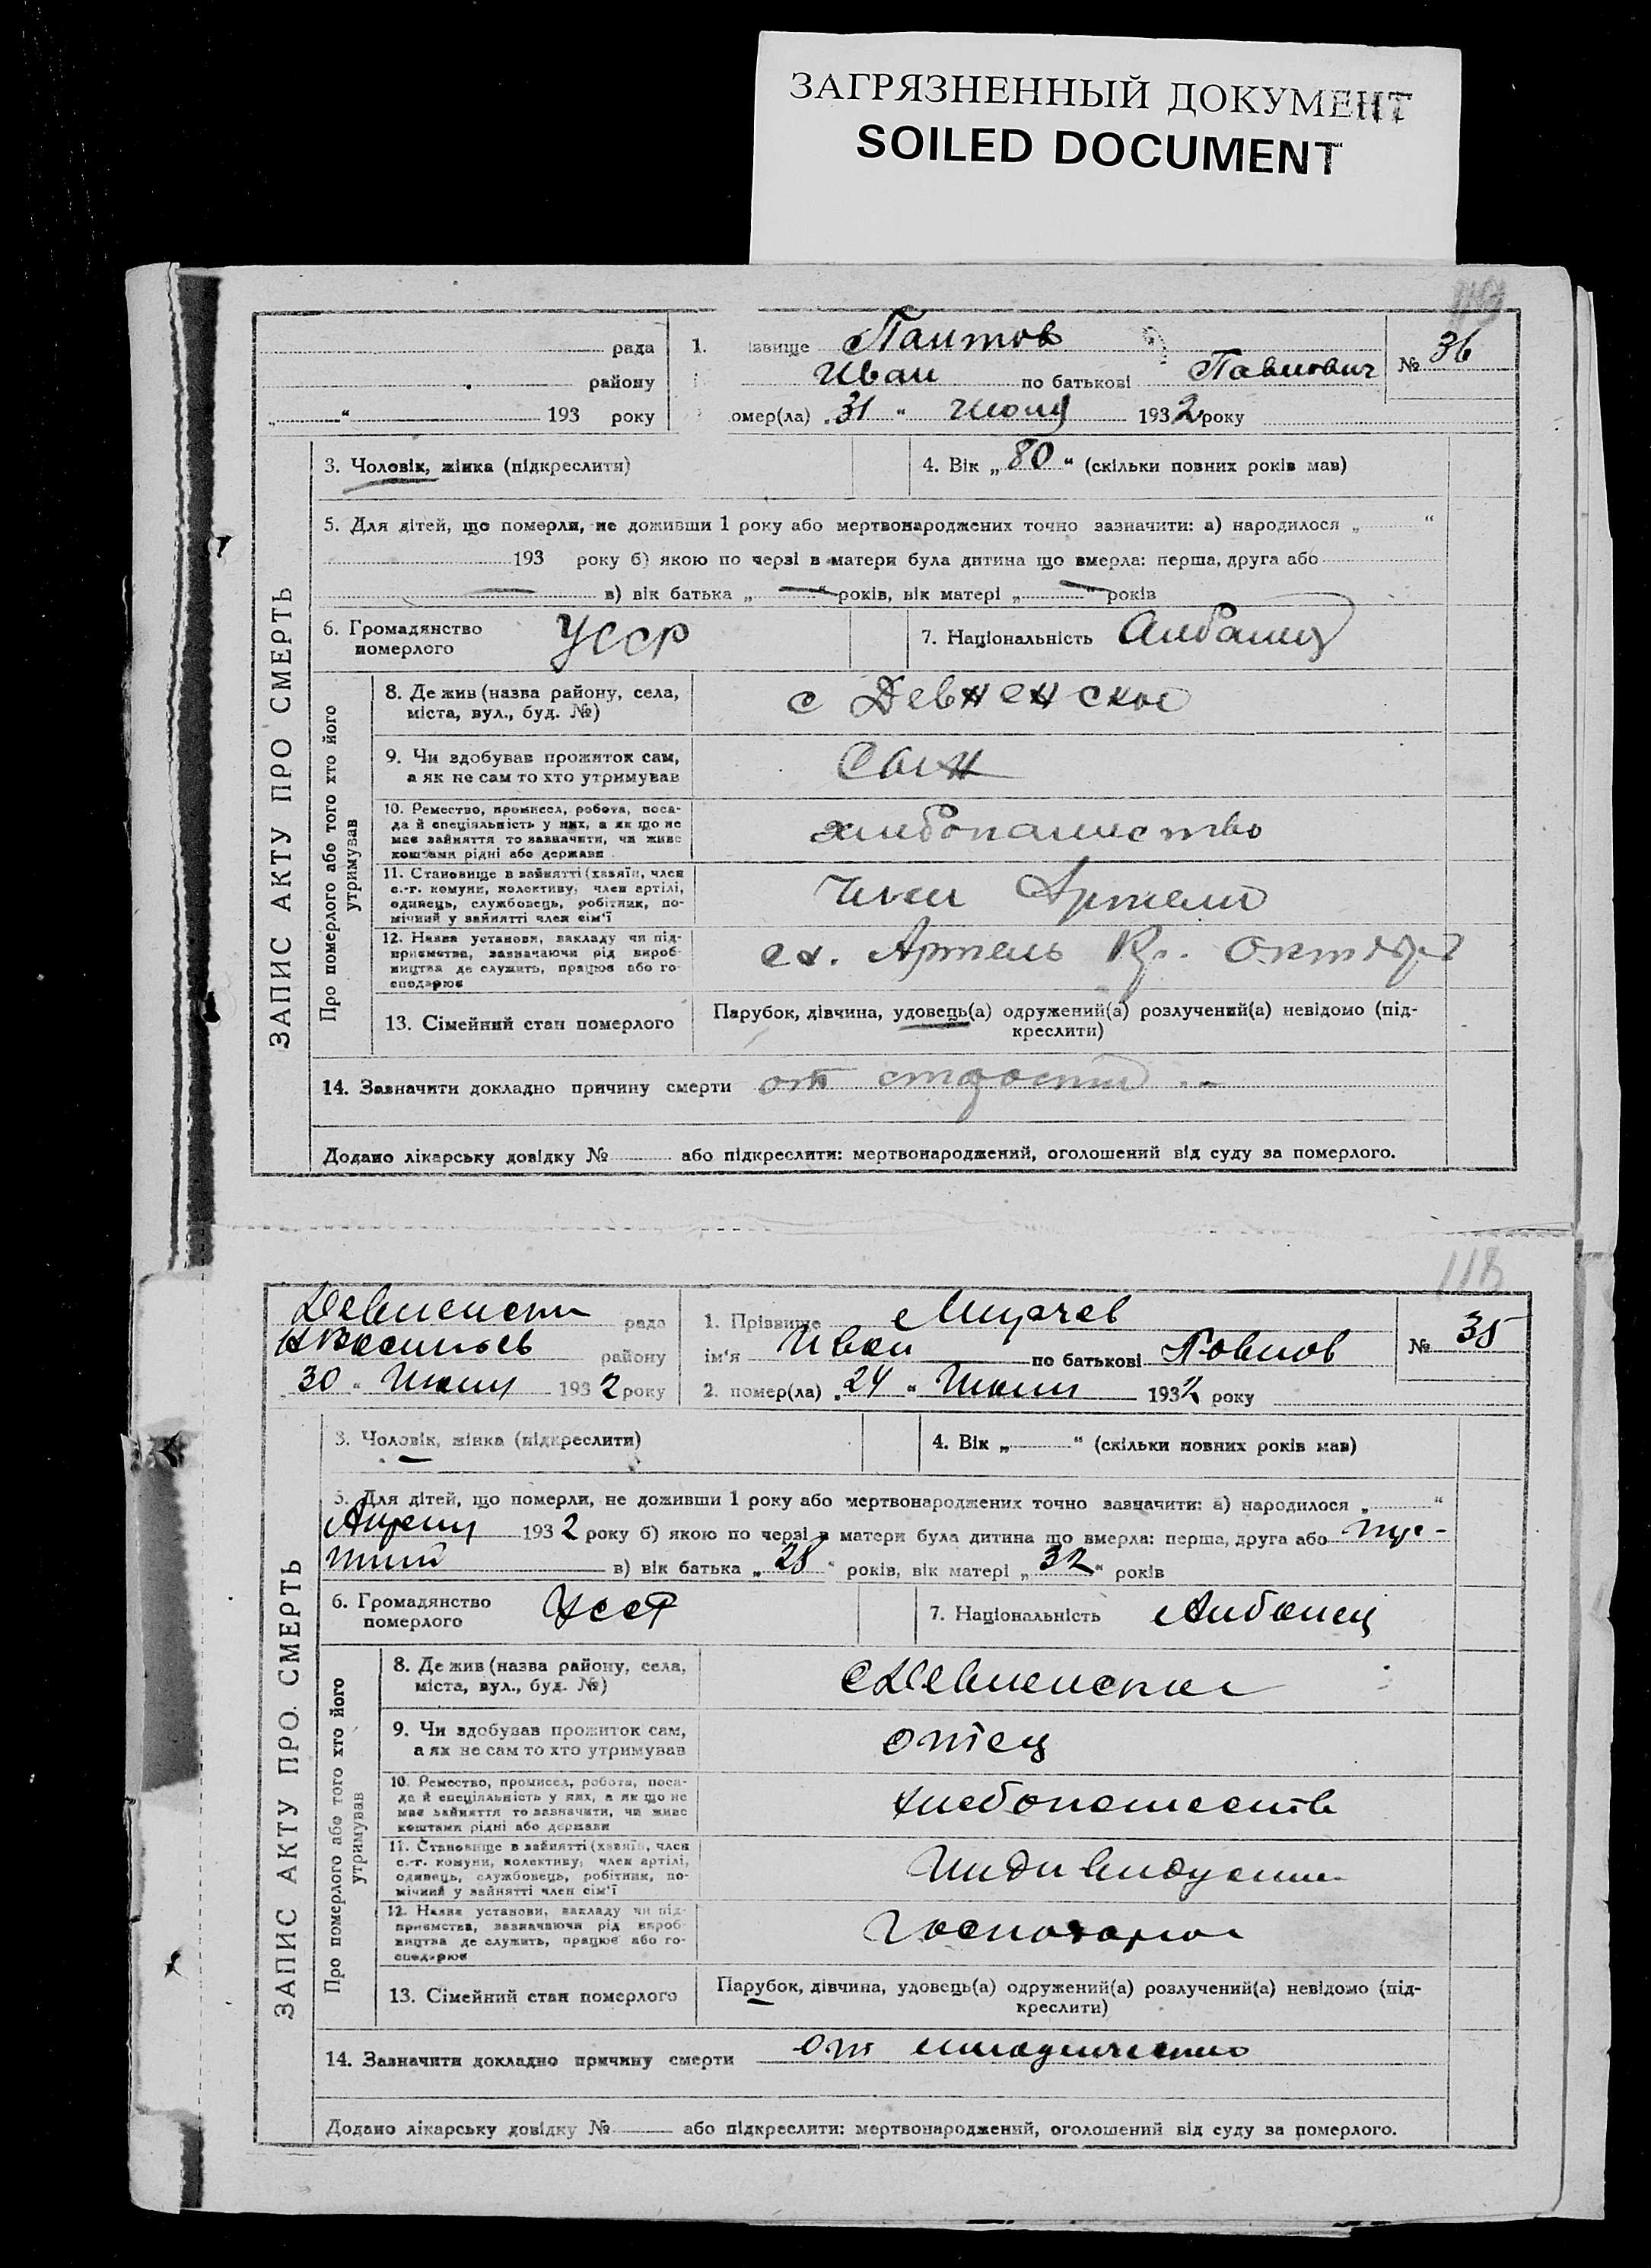 ЗАГРЯЗНЕННЫЙ ДОКУМЕНТ
SOILED DOCUMENT
рада 1. ізвище № 36
району Иван по батькові Павлович
„ “ 193 року омер(ла) „31 “ 1932 року
ЗАПИС АКТУ ПРО СМЕРТЬ
3. Чоловік, жінка (підкреслити) 4. Вік „80“ (скільки повних років мав)
5. Для дітей, що померли, не доживши 1 року або мертвонароджених точно зазначити: а) народилося „ “
193 року б) якою по черзі в матери була дитина що вмерла: перша, друга або
в) вік батька „—“ років, вік матері „—“ років
6. Громадянство померлого УССР 7. Національність Албанец
Про померлого або того хто його утримував
8. Де жив (назва району, села,
міста, вул., буд. №) с Девненское
9. Чи здобував прожиток сам,
а як не сам то хто утримував Сын
10. Ремество, промисел, робота, поса-
да й спеціяльність у них, а як що не
має зайняття то зазначити, чи живе
коштами рідні або держави хлибопашество
11. Становище в зайнятті (хазяїн, член
с.-г. комуни, колективу, член артілі,
одинець, службовець, робітник, по-
мічний у зайнятті член сім'ї член Артели
12. Назва установи, закладу чи під-
приємства, зазначаючи рід вироб-
ництва де служить, працює або го-
сподарює сх. Артель Кр. Октябр
13. Сімейний стан померлого Парубок, дівчина, удовець(а) одружений(а) розлучений(а) невідомо (під-
креслити)
14. Зазначити докладно причину смерти от старости
Додано лікарську довідку № або підкреслити: мертвонароджений, оголошений від суду за померлого.
118
рада 1. Прізвище № 35
району ім'я Иван по батькові Павлов
„30 “ 1932 року 2. помер(ла) „24 “ 1932 року
ЗАПИС АКТУ ПРО СМЕРТЬ
3. Чоловік, жінка (підкреслити) 4. Вік „ “ (скільки повних років мав)
5. Для дітей, що померли, не доживши 1 року або мертвонароджених точно зазначити: а) народилося „ “
Апрель 1932 року б) якою по черзі в матери була дитина що вмерла: перша, друга або тре-
тий в) вік батька „28“ років, вік матері „32“ років
6. Громадянство померлого УССР 7. Національність Албанец
Про померлого або того хто його утримував
8. Де жив (назва району, села,
міста, вул., буд. №) с Девненское
9. Чи здобував прожиток сам,
а як не сам то хто утримував отец
10. Ремество, промисел, робота, поса-
да й спеціяльність у них, а як що не
має зайняття то зазначити, чи живе
коштами рідні або держави
11. Становище в зайнятті (хазяїн, член
с.-г. комуни, колективу, член артілі,
одинець, службовець, робітник, по-
мічний у зайнятті член сім'ї
12. Назва установи, закладу чи під-
приємства, зазначаючи рід вироб-
ництва де служить, працює або го-
сподарює
13. Сімейний стан померлого Парубок, дівчина, удовець(а) одружений(а) розлучений(а) невідомо (під-
креслити)
14. Зазначити докладно причину смерти от
Додано лікарську довідку № або підкреслити: мертвонароджений, оголошений від суду за померлого.